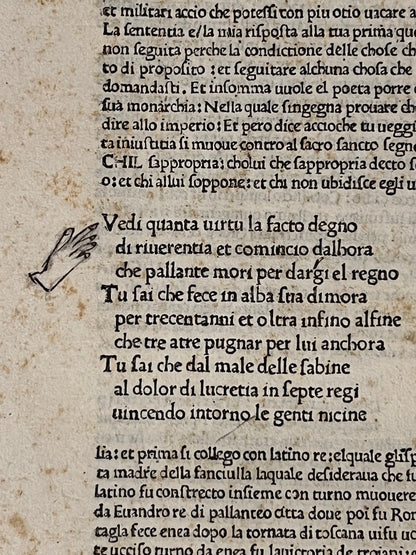 et militari accio che potessi con piu otio uacare a
La sententia e/la uia risposta alla tua prima que
non seguita perche la condictione delle chose ch
to di proposito : et seguitare alchuna chosa che
domandasti. Et insomma uuole el poeta porre c
sua monarchia: Nella quale singegna prouare ch
dire allo imperio: Et pero dice accioche tu ueggi
ta iniustitia si muoue contro al sacro sancto segn
CHIL sappropria: cholui che sappropria decto s
o: et chi allui soppone: et chi non ubidisce egli u
Vedi quanta uirtu la facto degno
di riuerentia et comincio dalhora
che pallante mori per dargi el regno
Tu sai che fece in alba sua dimora
per trecentanni et oltra infino alfine
che tre atre pugnar per lui anchora
Tu sai che dal male delle sabine
al dolor di lucretia in septe regi
uincendo intorno le genti uicine
lia: et prima si collego con latino re: elquale gli
ta madre della fanciulla laquale desideraua che fu
latino fu constrecto insieme con turno muouere
da Euandro re di pallanteo citta doue poi fu Ron
tagla fece enea dopo la tornata di toscana
te uccise turno da enea fu la uictoria de troiani